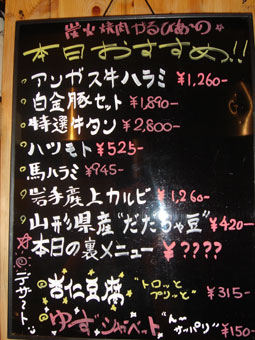 炭火焼肉やるびあかの
本日おすすめ!!
アンガス牛ハラミ ¥1,260-
白金豚セット ¥1,890-
特選牛タン ¥2,800-
ハツモト ¥525-
馬ハラミ ¥945-
岩手産上カルビ ¥1,260-
山形県産"だだちゃ豆" ¥420-
本日の裏メニュー ¥????
デザート
杏仁豆腐 "トロッとプリッと" ¥315-
ゆずシャーベット "ん〜サッパリ" ¥150-